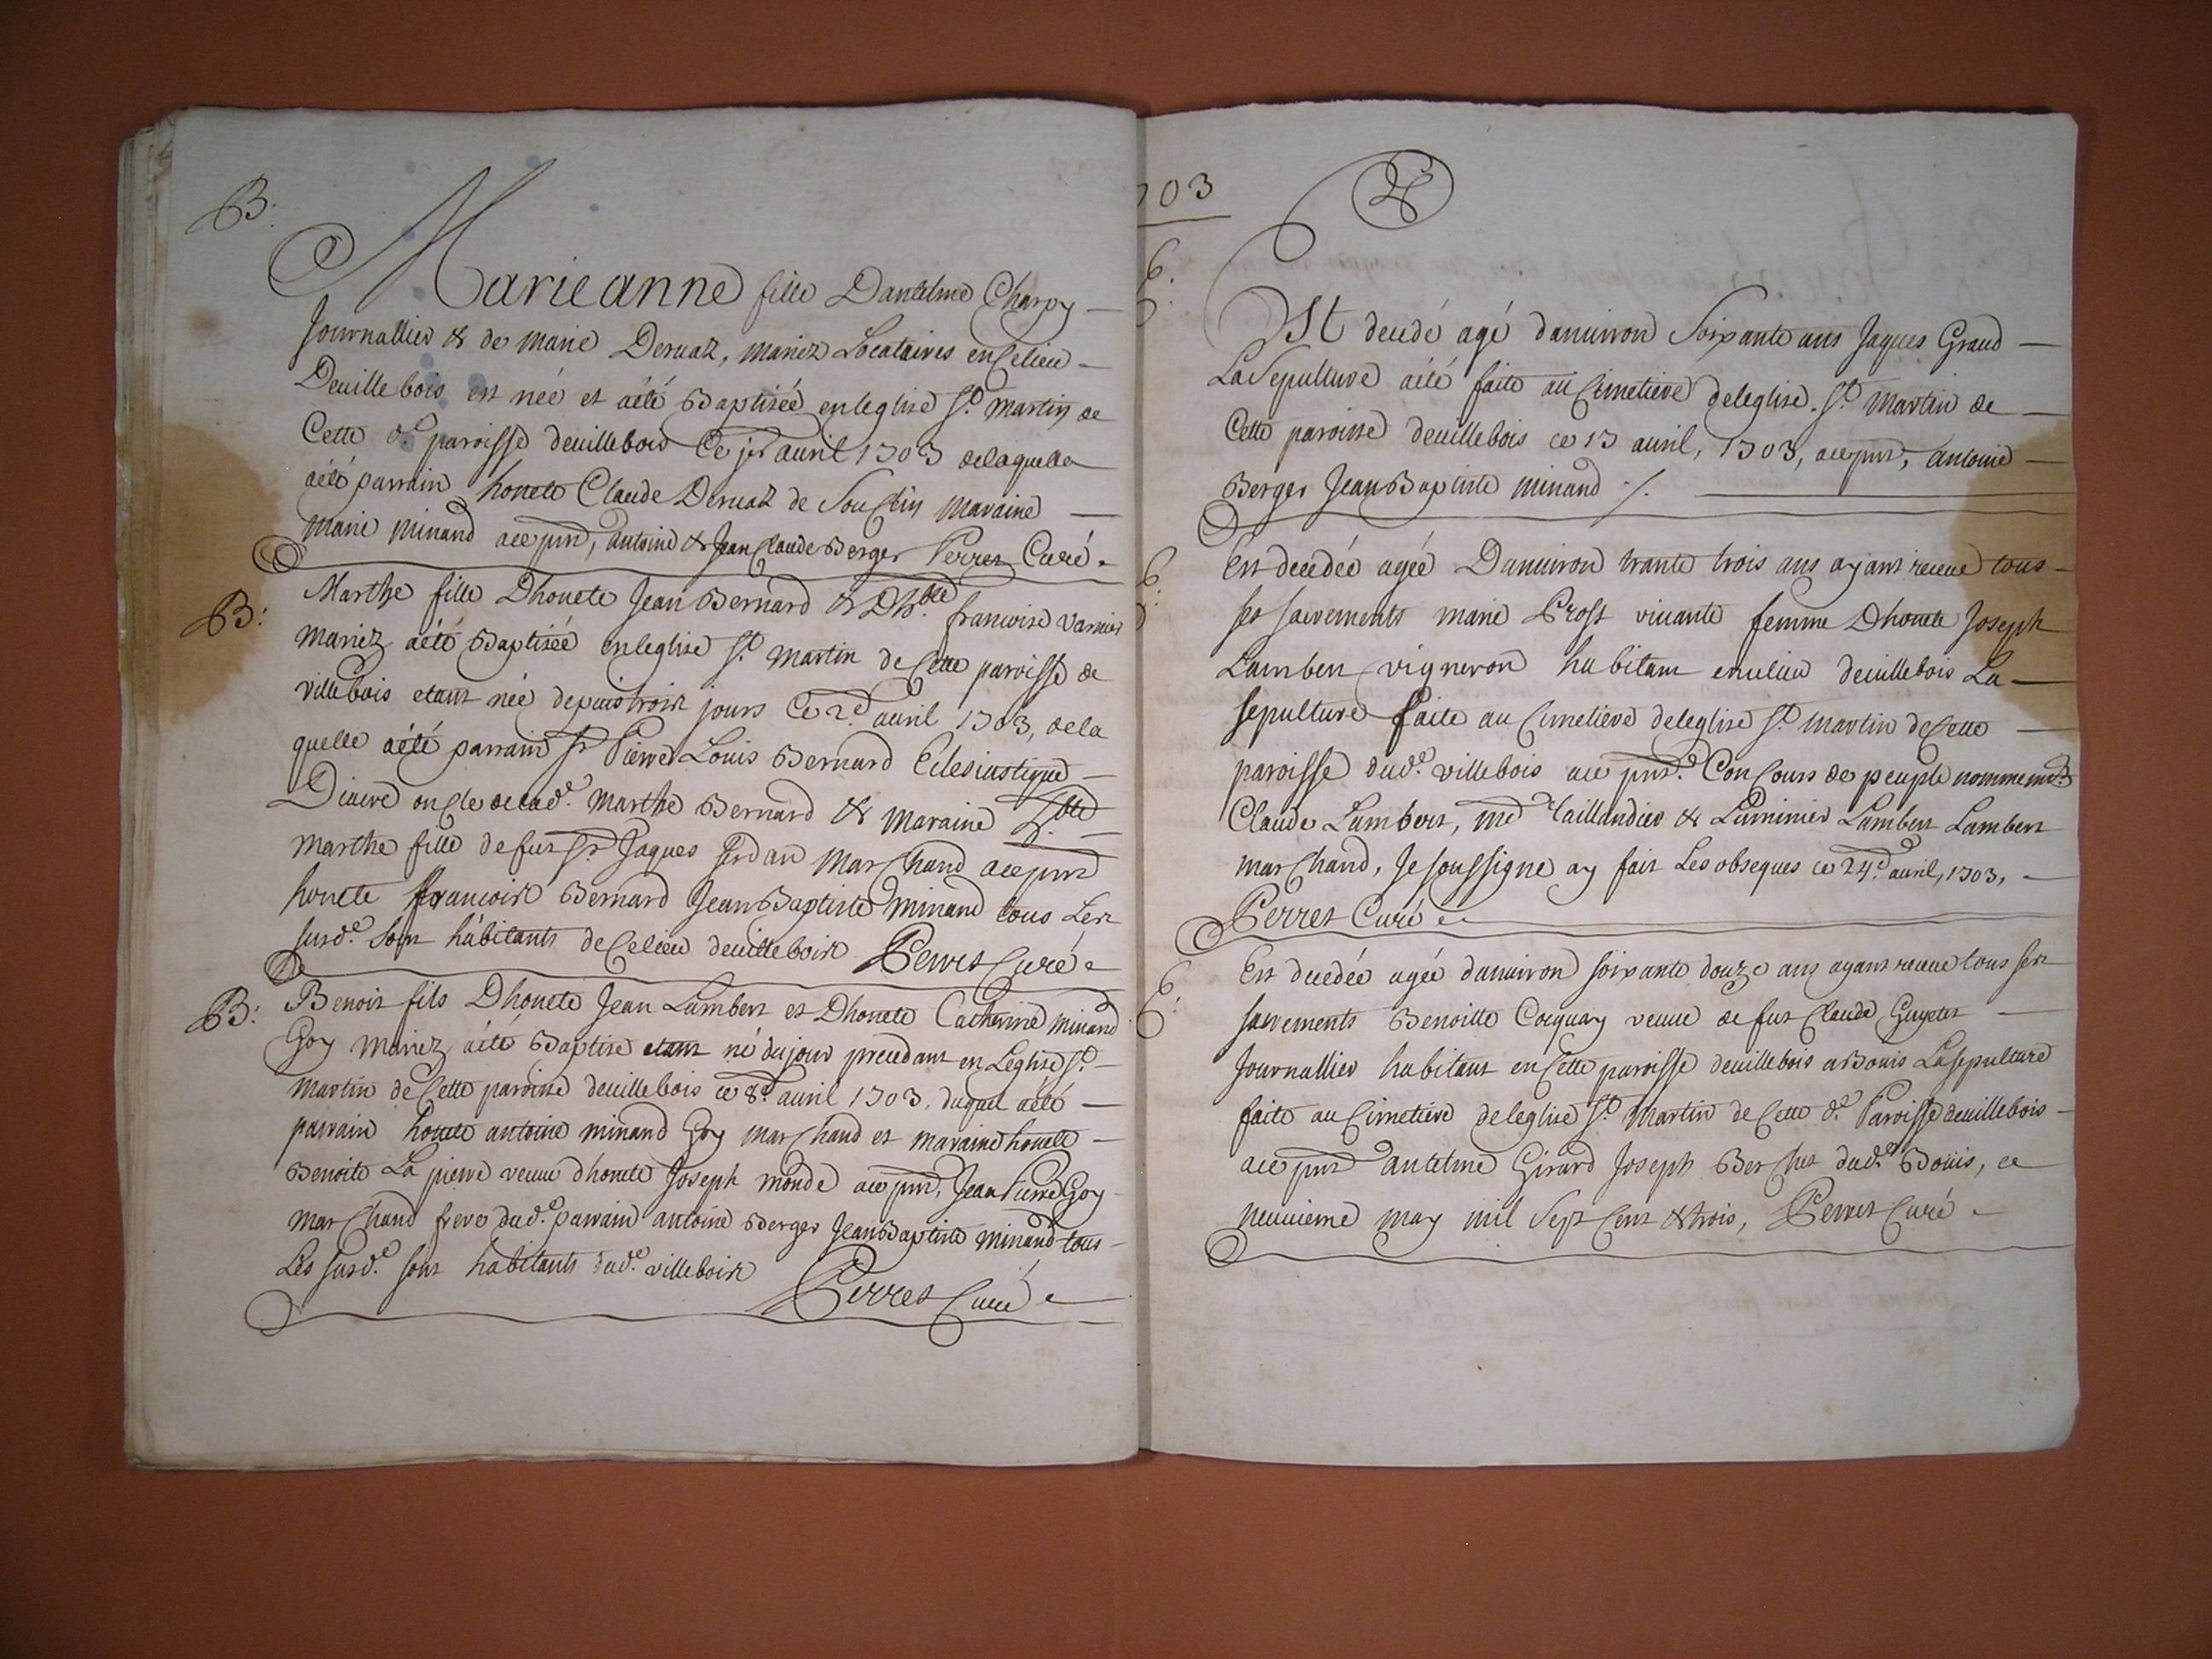 B.
Marie anne fille Dantelme Charvy
Journallier & de marie Deruaz, mariez Locataires en Celieu
Deuillebois est née et aété Baptisée enleglise St. Martin de
Cette de. paroisse deuillebois Ce jer auril 1703 delaquelle
aété parrain honete Claude Deruaz de Souclin maraine
marie minand ace pnts, antoine & Jean Claude Berger Perret Curé.
B:
Marthe fille Dhonete Jean Bernard & Dhble. francoise varnier
mariez aété Baptisée enleglise St. martin de Cette paroisse de
villebois etant née depuis troix jours Ce 2d. auril 1703, dela
quelle aété parrain Sr Pierre Louis Bernard Eclesiastique
Diacre oncle de lade. Marthe Bernard & maraine hble
marthe fille defut Sr Jaques jordan marchand ace pnts
honete francoix Bernard Jean Baptiste minand tous Les
susde. sont habitants de Celieu deuilleboix Perret Curé
B:
Benoit fils Dhonete Jean Lambert et Dhonete Catherine minand
Goy mariez, aété Baptisé etant né dujour precedant en Leglise St.
martin de Cette paroisse deuillebois ce 8e. auril 1703, duquel aété
parrain honete antoine minand Goy marchand et maraine honete
Benoite La pierre veuue dhonete Joseph monde ace pnts, Jean Pierre Goy
marchand frere dude. parrain antoine Berger Jean Baptiste minand tous
Les susde. sont habitants dude. villeboix
Perret Curé
703
E.
Est decedé agé danuiron Soixante ans Jaques Graud
La Sepulture aété faite au Cimetiere deleglise St. martin de
Cette paroisse deuillebois ce 13 auril, 1703, ace pnts, antoine
Berger Jean Baptiste minand /.
E.
Est decedée agée Danuiron trante trois ans ayant receue tous
ses sacrements marie Prost viuante femme Dhonete Joseph
Lambert vigneron habitant encelieu deuillebois La
sepulture faite au Cimetiere deleglise St. martin de Cette
paroisse dude. villebois ace pnts. Concours de peuple nommemt.
Claude Lambert, md Taillandier & Luminier Lambert Lambert
marchand, Je soussigne ay fait Les obseques ce 24e. auril, 1703,
Perret Curé
E.
Est decedée agée danuiron soixante douze ans ayant receue tous ses
sacrements Benoitte Cocquay veuue de fut Claude Guyetet
Journallier habitant en Cette paroisse deuillebois a Bouis La sepulture
faite au Cimetiere deleglise St. martin de Cette de. Paroisse deuillebois
ace pnts antelme Girard Joseph Berchet dude. Boüis, ce
neuuieme may mil Sept Cent & trois, Perret Curé